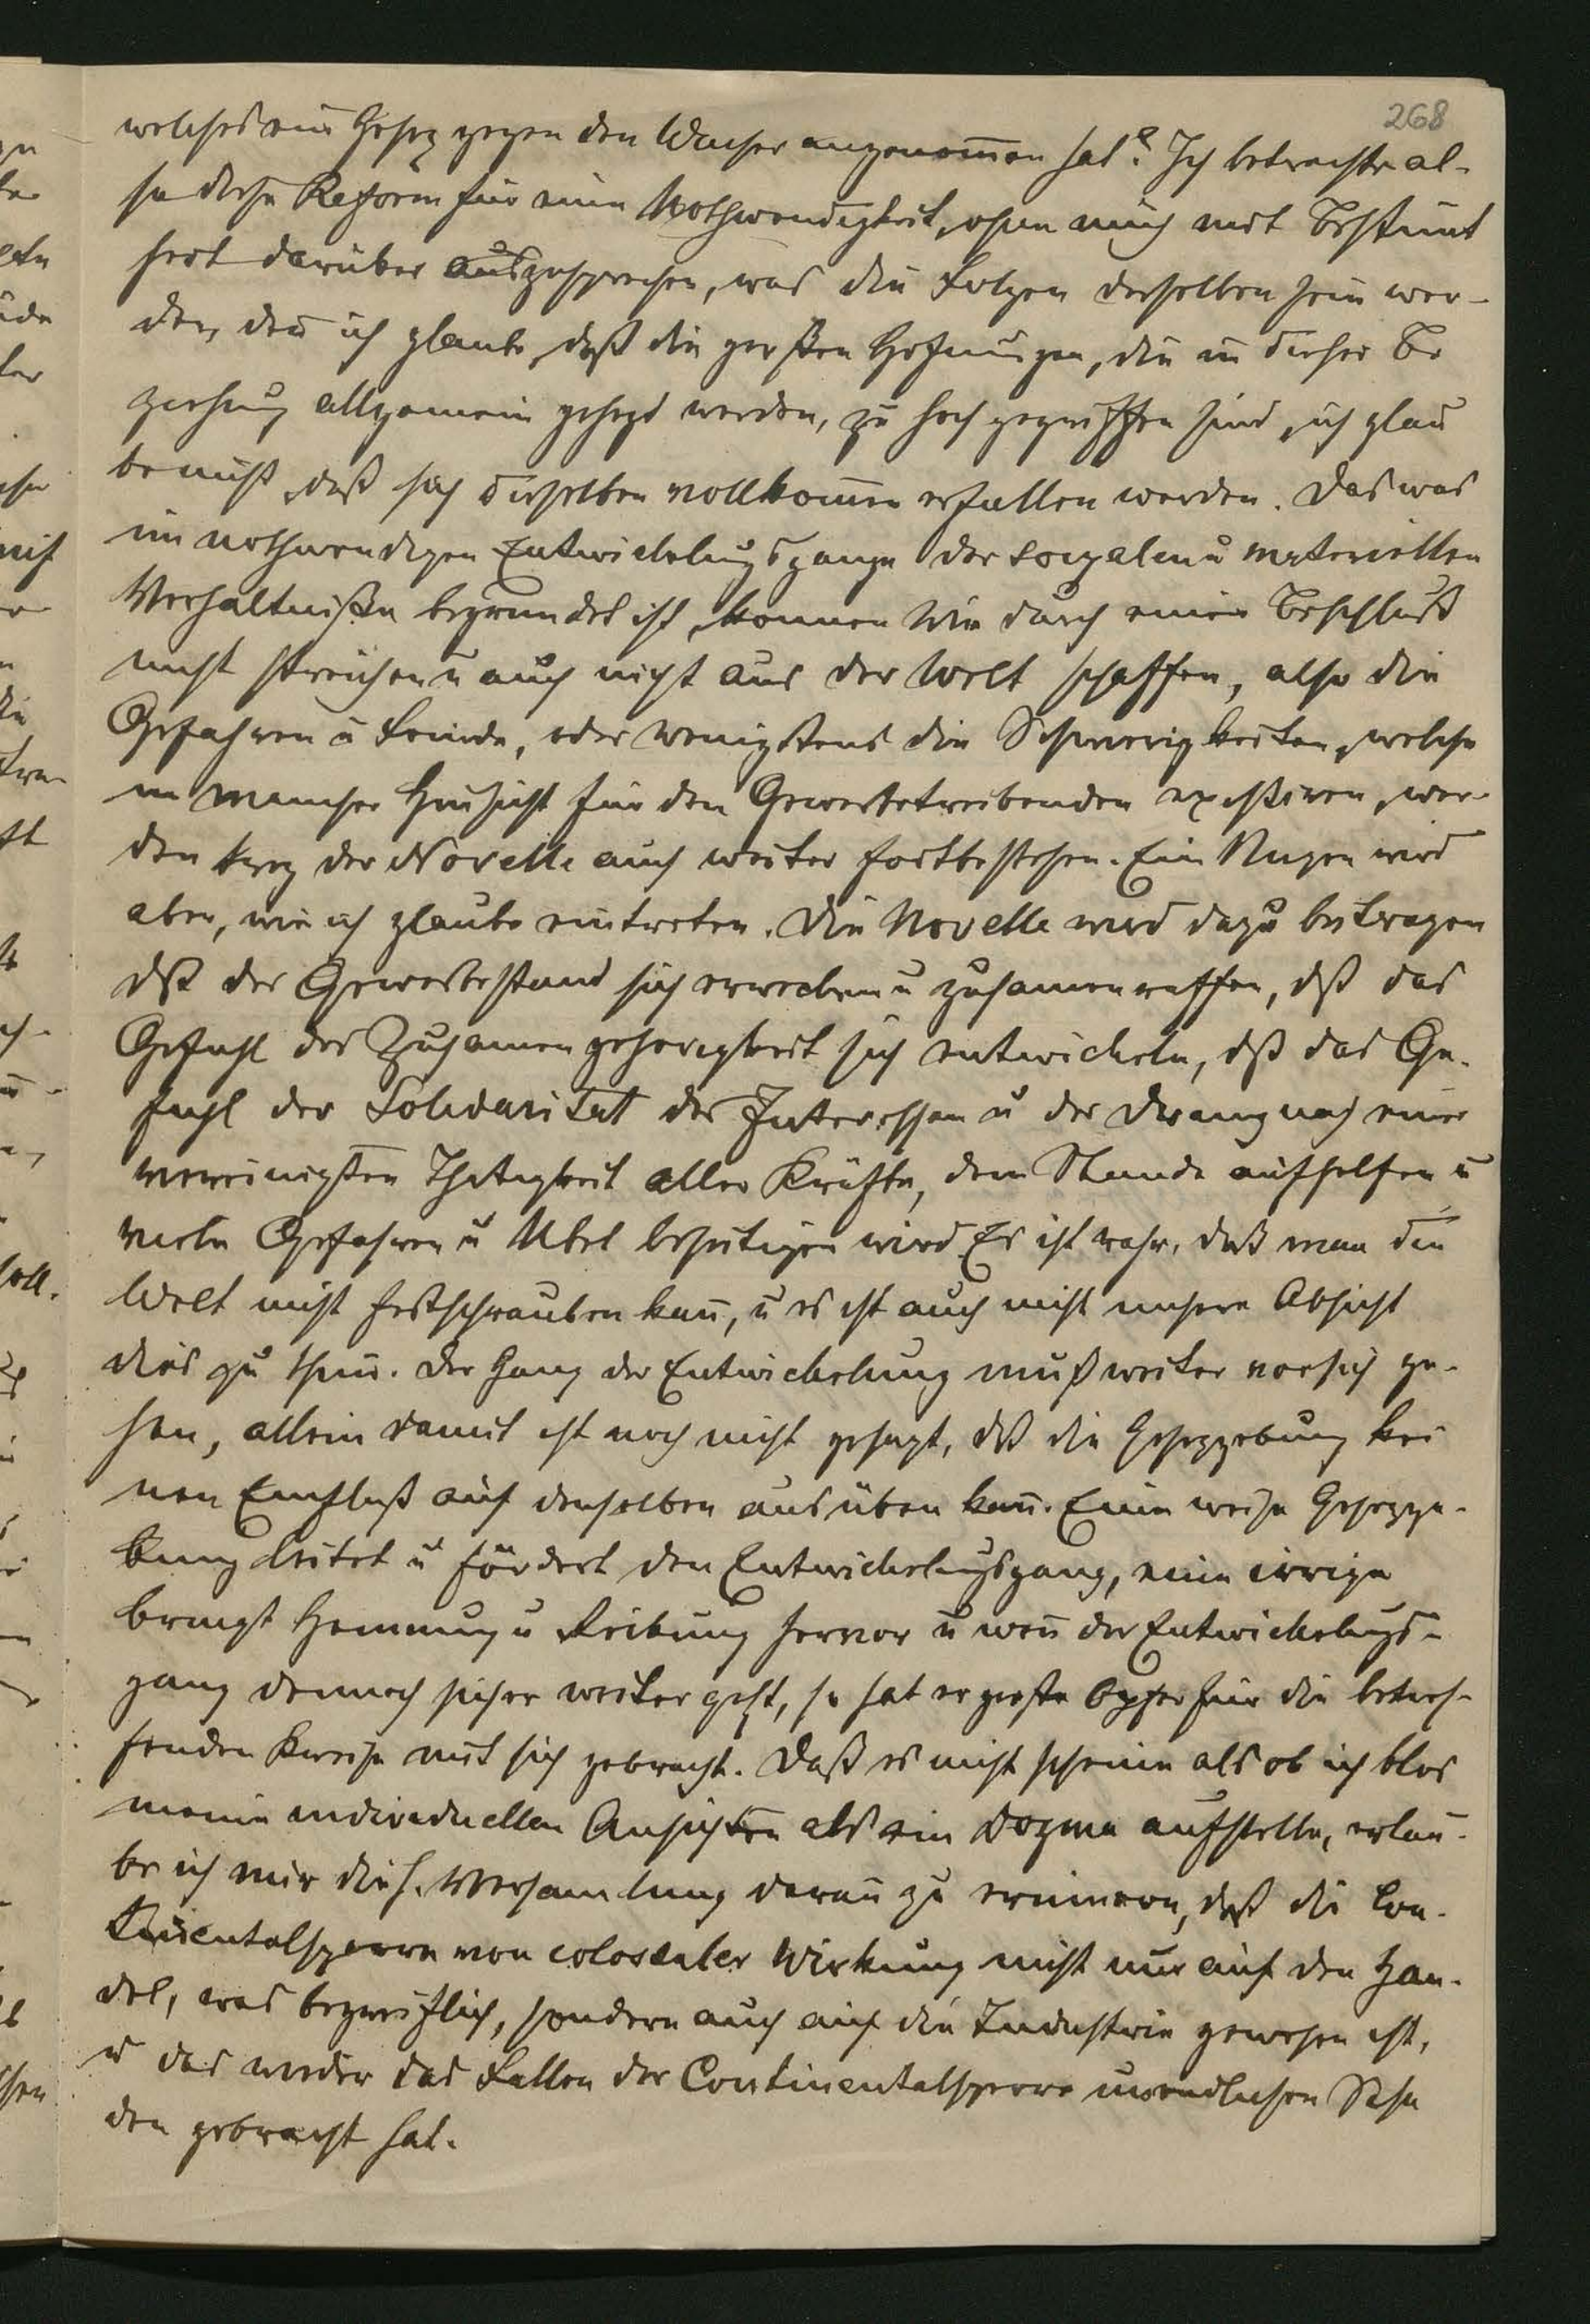 268
welches ein Gesez gegen den Wucher angenommen hat? Ich betrachte al-
so diese Reform für eine Nothwendigkeit, ohne mich mit Bestimt
heit darüber auszusprechen, was die Folgen derselben sein wer-
den, den ich glaube, daß die großen Hofnungen, die in dieser Be
ziehung allgemein gehegt werden, zu hoch gegriffen sind, ich glau
be nicht, daß sich dieselben vollkomen erfullen werden. Das was
im nothwendigen Entwickelungsgange der sozialen u materiellen
Verhaltniße begrundet ist, konnen Wir durch einen Beschluß
nicht streichen u auch nicht aus der Welt schaffen, also die
Gefahren u Feinde, oder wenigstens die Schwierigkeiten, welche
in mancher Hinsicht für den Gewerbetreibenden existiren, wer-
den trez der Novelle auch weiter fortbestehen. Ein Nuzen wird
aber, wie ich glaube eintreten. Die Novelle wird dazu beitragen
dß der Gewerbestand sich erwecken u zusamenraffen, dß das
Gefuhl der Zusamengehorigkeit sich entwickeln, dß das Ge-
fuhl der Solidaritat der Interessen u der Drang nach einer
vereinigten Thatigkeit aller Kräfte, dem Stande aufhelfen u
viele Gefahren u Ubel beseitigen wird Es ist wahr, daß man die
Welt nicht festschrauben kan, u es ist auch nicht unsere Absicht
dies zu thun. Der Gang der Entwickelung muß weiter vor sich ge-
hen, allein damit ist noch nicht gesagt, dß die Gesezgebung kei
nen Einfluß auf denselben ausüben kan. Eine weise Gesezge-
bung leitet u fördert den Entwickelungsgang, eine irrige
bringt Hemung u Reibung hervor u wen der Entwickelungs-
gang dennoch sicher weiter geht, so hat er große Opfer für die betref-
fenden Kreise mit sich gebracht. Daß es nicht scheine als ob ich blos
meine individuellen Ansichten als ein Dogma aufstelle, erlau-
be ich mir die h. Versamlung daran zu erinnern, daß die Con-
tinentalsperre von colosaler Wirkung nicht nur auf den Han-
del, was begreiflich, sondern auch auf die Industrie gewesen ist,
u das wieder das Fallen der Continentalsperre unendlichen Scha
den gebracht hat.